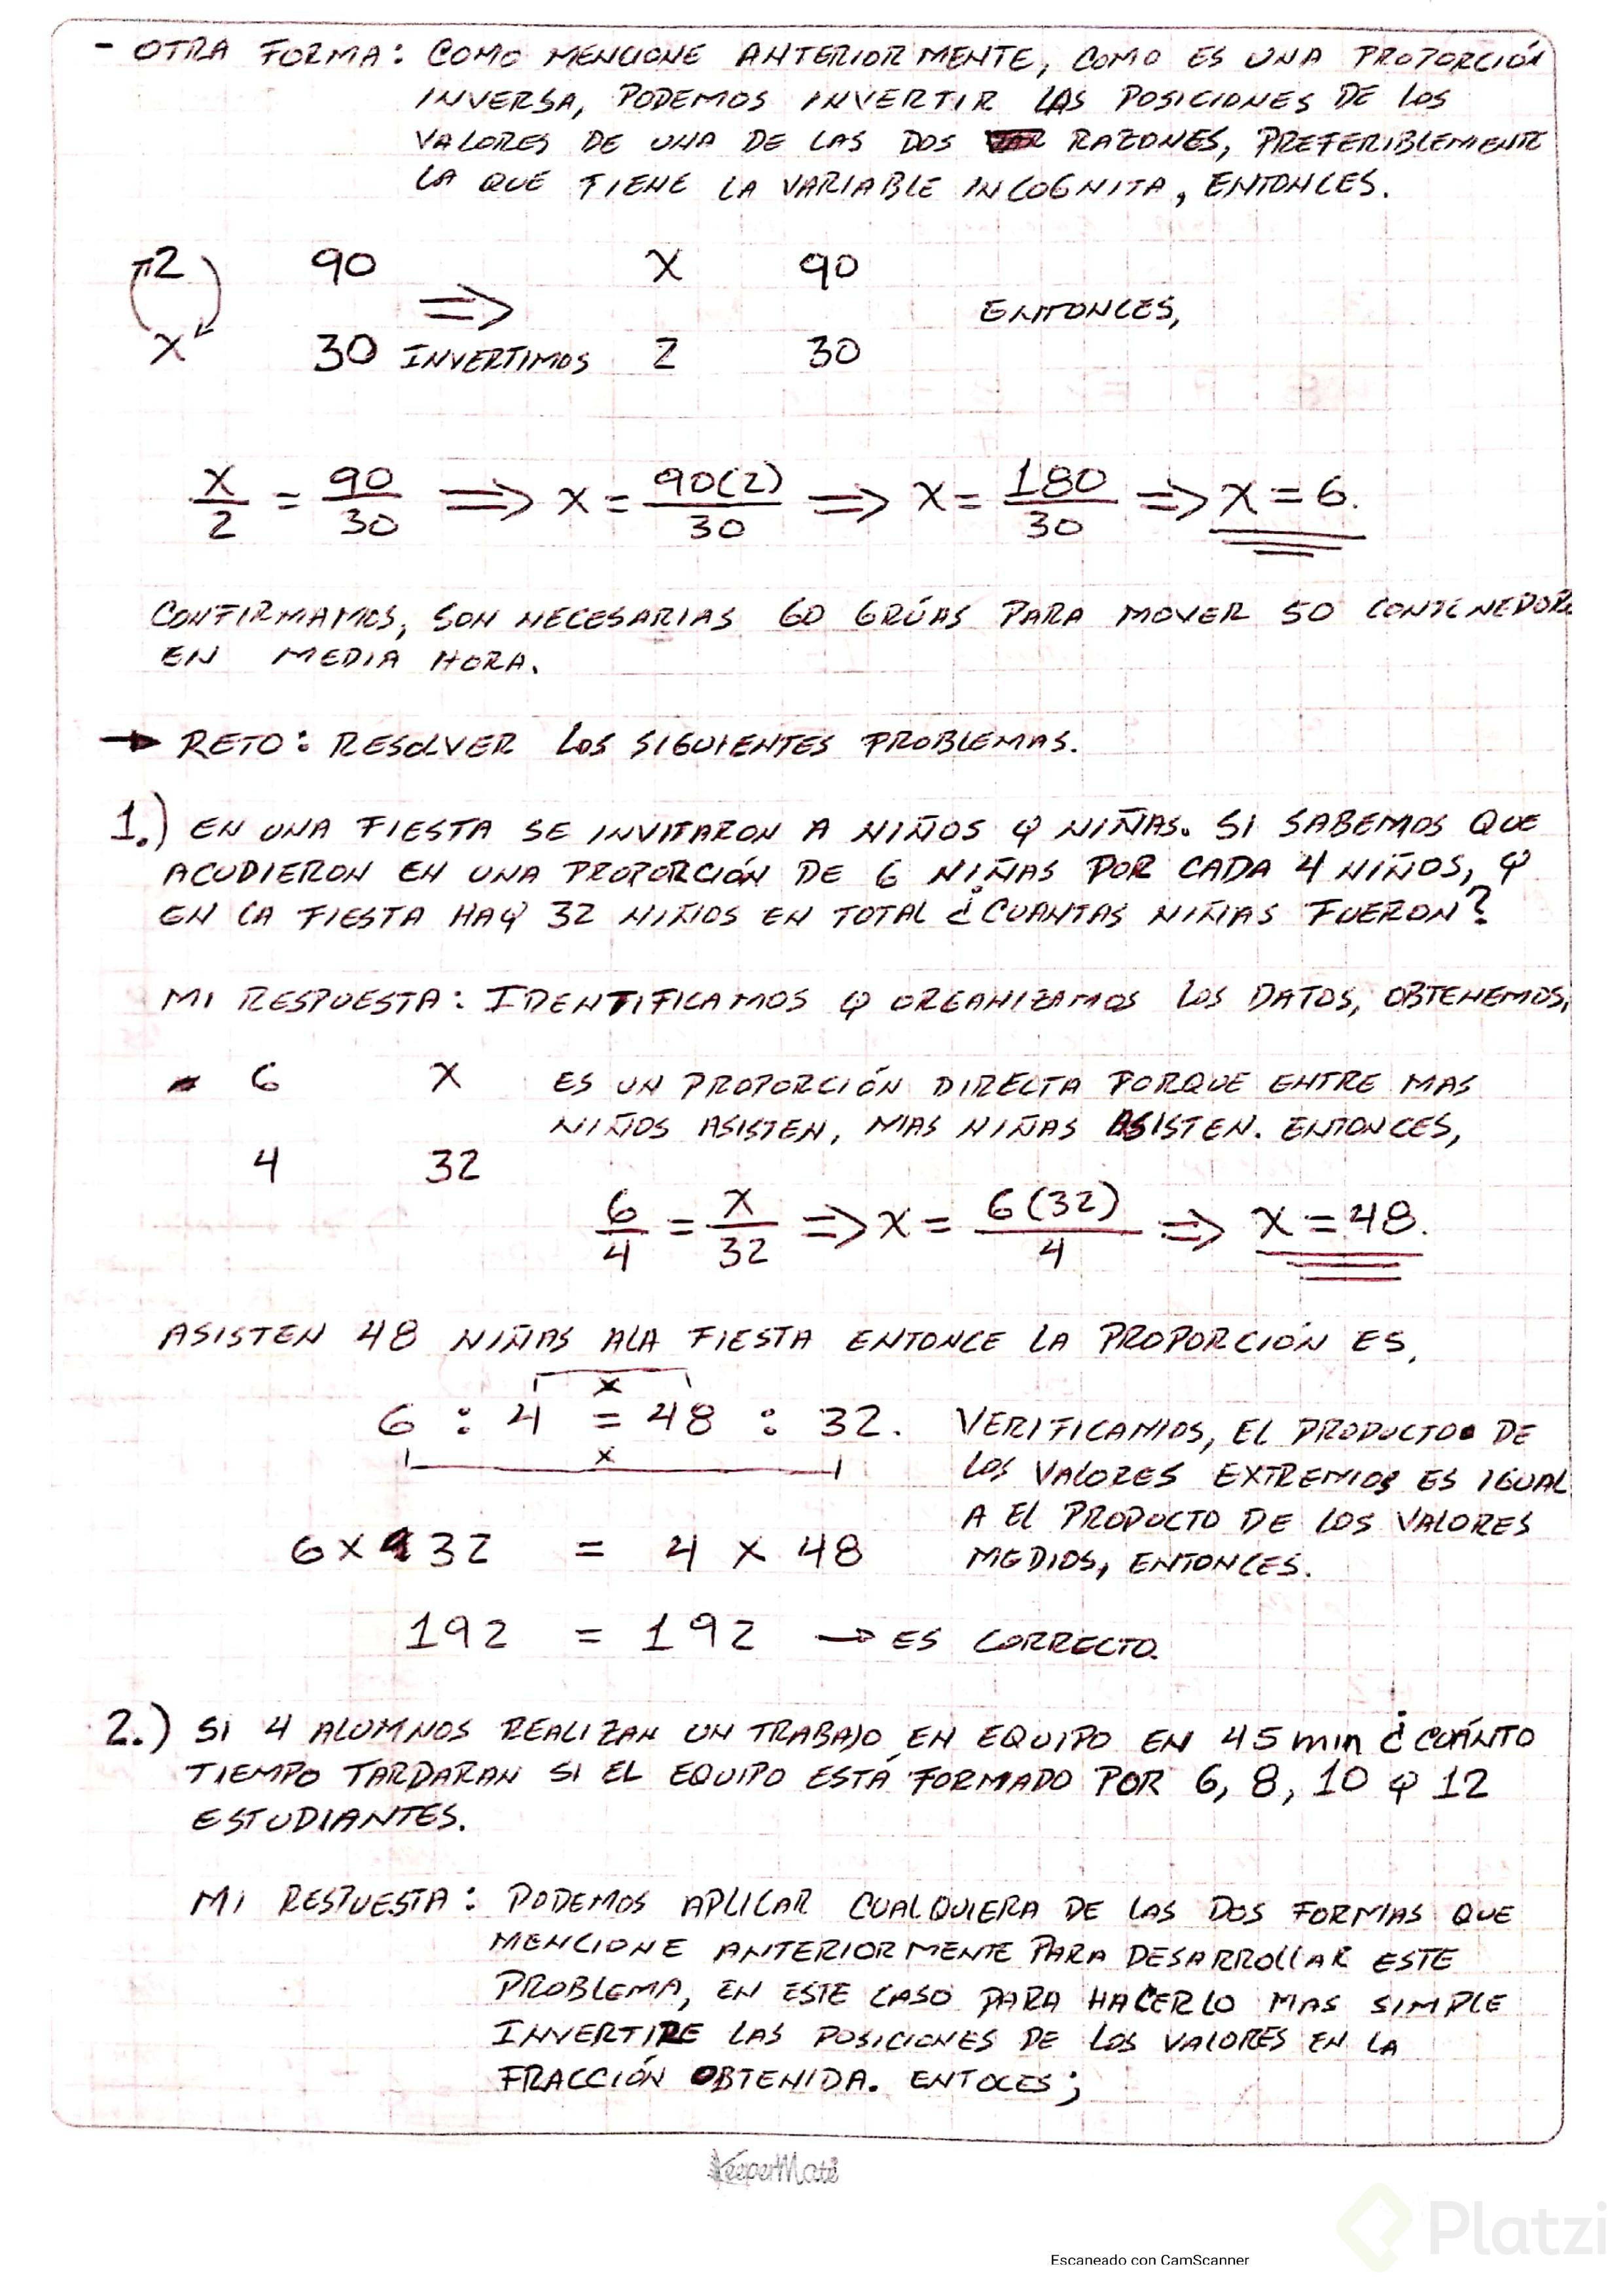 - OTRA FORMA: COMO MENCIONE ANTERIORMENTE, COMO ES UNA PROPORCIÓN
INVERSA, PODEMOS INVERTIR LAS POSICIONES DE LOS
VALORES DE UNA DE LAS DOS RAZONES, PREFERIBLEMENTE
LA QUE TIENE LA VARIABLE INCOGNITA, ENTONCES.
2 90 X 90
⇒ ENTONCES,
X 30 INVERTIMOS 2 30
X/2 = 90/30 ⇒ X = 90(2)/30 ⇒ X = 180/30 ⇒ X = 6.
CONFIRMAMOS, SON NECESARIAS 60 GRÚAS PARA MOVER 50 CONTENEDOR
EN MEDIA HORA.
→ RETO: RESOLVER LOS SIGUIENTES PROBLEMAS.
1.) EN UNA FIESTA SE INVITARON A NIÑOS Y NIÑAS. SI SABEMOS QUE
ACUDIERON EN UNA PROPORCIÓN DE 6 NIÑAS POR CADA 4 NIÑOS, Y
EN LA FIESTA HAY 32 NIÑOS EN TOTAL ¿CUANTAS NIÑAS FUERON?
MI RESPUESTA: IDENTIFICAMOS Y ORGANIZAMOS LOS DATOS, OBTENEMOS,
6 X ES UN PROPORCIÓN DIRECTA PORQUE ENTRE MAS
NIÑOS ASISTEN, MAS NIÑAS ASISTEN. ENTONCES,
4 32
6/4 = X/32 ⇒ X = 6(32)/4 ⇒ X = 48.
ASISTEN 48 NIÑAS ALA FIESTA ENTONCE LA PROPORCIÓN ES,
x
6 : 4 = 48 : 32. VERIFICAMOS, EL PRODUCTO DE
x LOS VALORES EXTREMOS ES IGUAL
A EL PRODUCTO DE LOS VALORES
6 X 32 = 4 X 48 MEDIOS, ENTONCES.
192 = 192 → ES CORRECTO.
2.) SI 4 ALUMNOS REALIZAN UN TRABAJO EN EQUIPO EN 45 min ¿CUÁNTO
TIEMPO TARDARAN SI EL EQUIPO ESTÁ FORMADO POR 6, 8, 10 Y 12
ESTUDIANTES.
MI RESPUESTA: PODEMOS APLICAR CUALQUIERA DE LAS DOS FORMAS QUE
MENCIONE ANTERIORMENTE PARA DESARROLLAR ESTE
PROBLEMA, EN ESTE CASO PARA HACERLO MAS SIMPLE
INVERTIRE LAS POSICIONES DE LOS VALORES EN LA
FRACCIÓN OBTENIDA. ENTOCES;
KeeperMate
Platzi
Escaneado con CamScanner